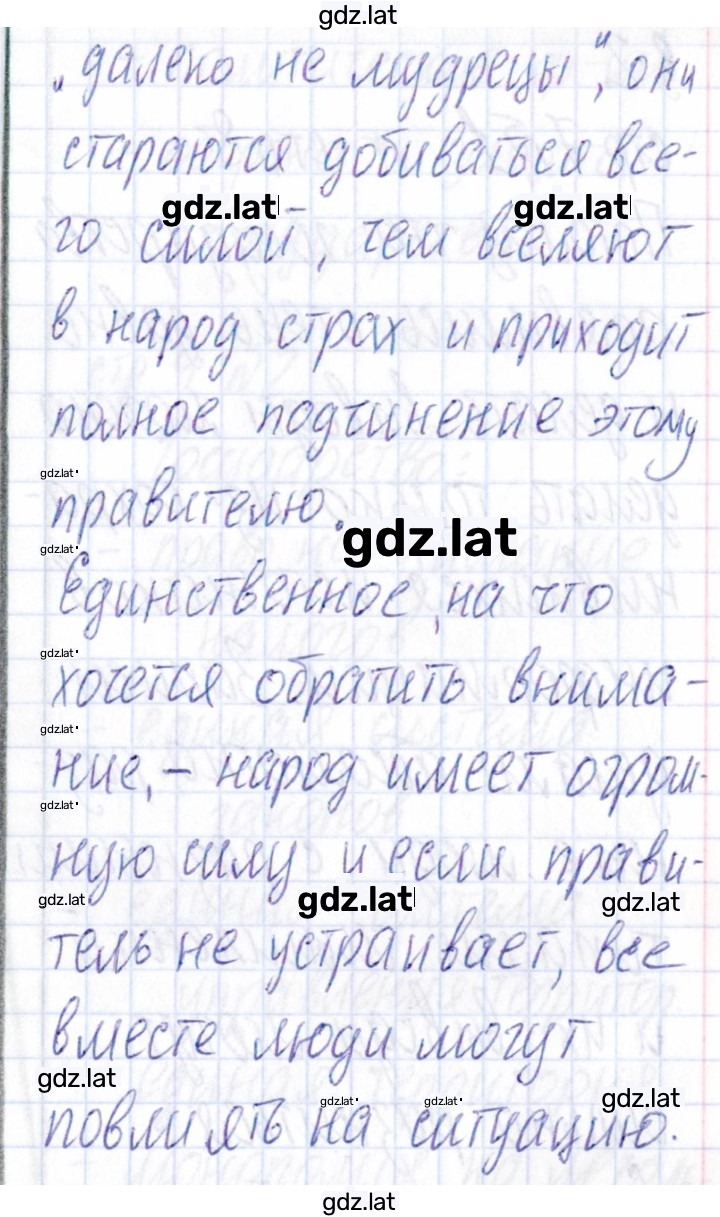 gdz.lat
„далеко не мудрецы", они
стараются добиваться все-
gdz.lat gdz.lat
го силой, чем вселяют
в народ страх и приходит
полное подчинение этому
gdz.lat
правителю.
gdz.lat
gdz.lat
Единственное, на что
gdz.lat
хочется обратить внима-
gdz.lat
ние, – народ имеет огром-
gdz.lat
ную силу и если прави-
gdz.lat gdz.lat gdz.lat
тель не устраивает, все
вместе люди могут
gdz.lat gdz.lat gdz.lat gdz.lat
повлиять на ситуацию.
gdz.lat